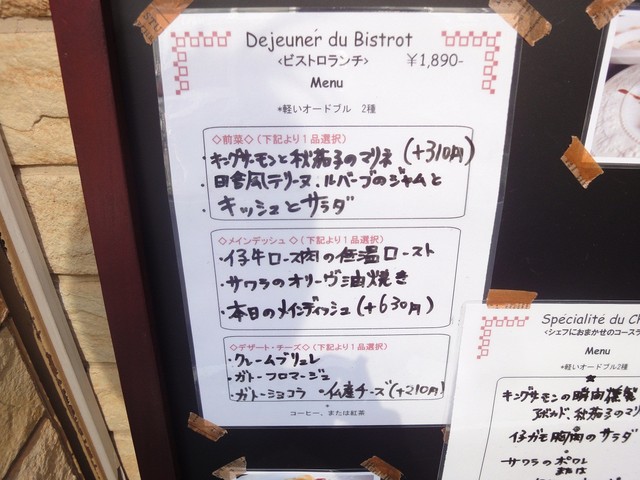 Dejeuner du Bistrot
<ビストロランチ> ￥1,890-
Menu
*軽いオードブル 2種
◇前菜◇(下記より1品選択)
・キングサーモンと秋茄子のマリネ(+310円)
・田舎風テリーヌ、ルバーブのジャムと
・キッシュとサラダ
◇メインデッシュ◇(下記より1品選択)
・仔牛ロース肉の低温ロースト
・サワラのオリーヴ油焼き
・本日のメインディッシュ(+630円)
◇デザート・チーズ◇(下記より1品選択)
・クレームブリュレ
・ガトーフロマージュ
・ガトーショコラ ・仏産チーズ(+210円)
+
コーヒー、または紅茶
Spécialité du Ch
<シェフにおまかせのコースラ
Menu
*軽いオードブル2種
キングサーモンの瞬間燻製
秋茄子のマリ
仔ガモ胸肉のサラダ
サワラのポワレ
または